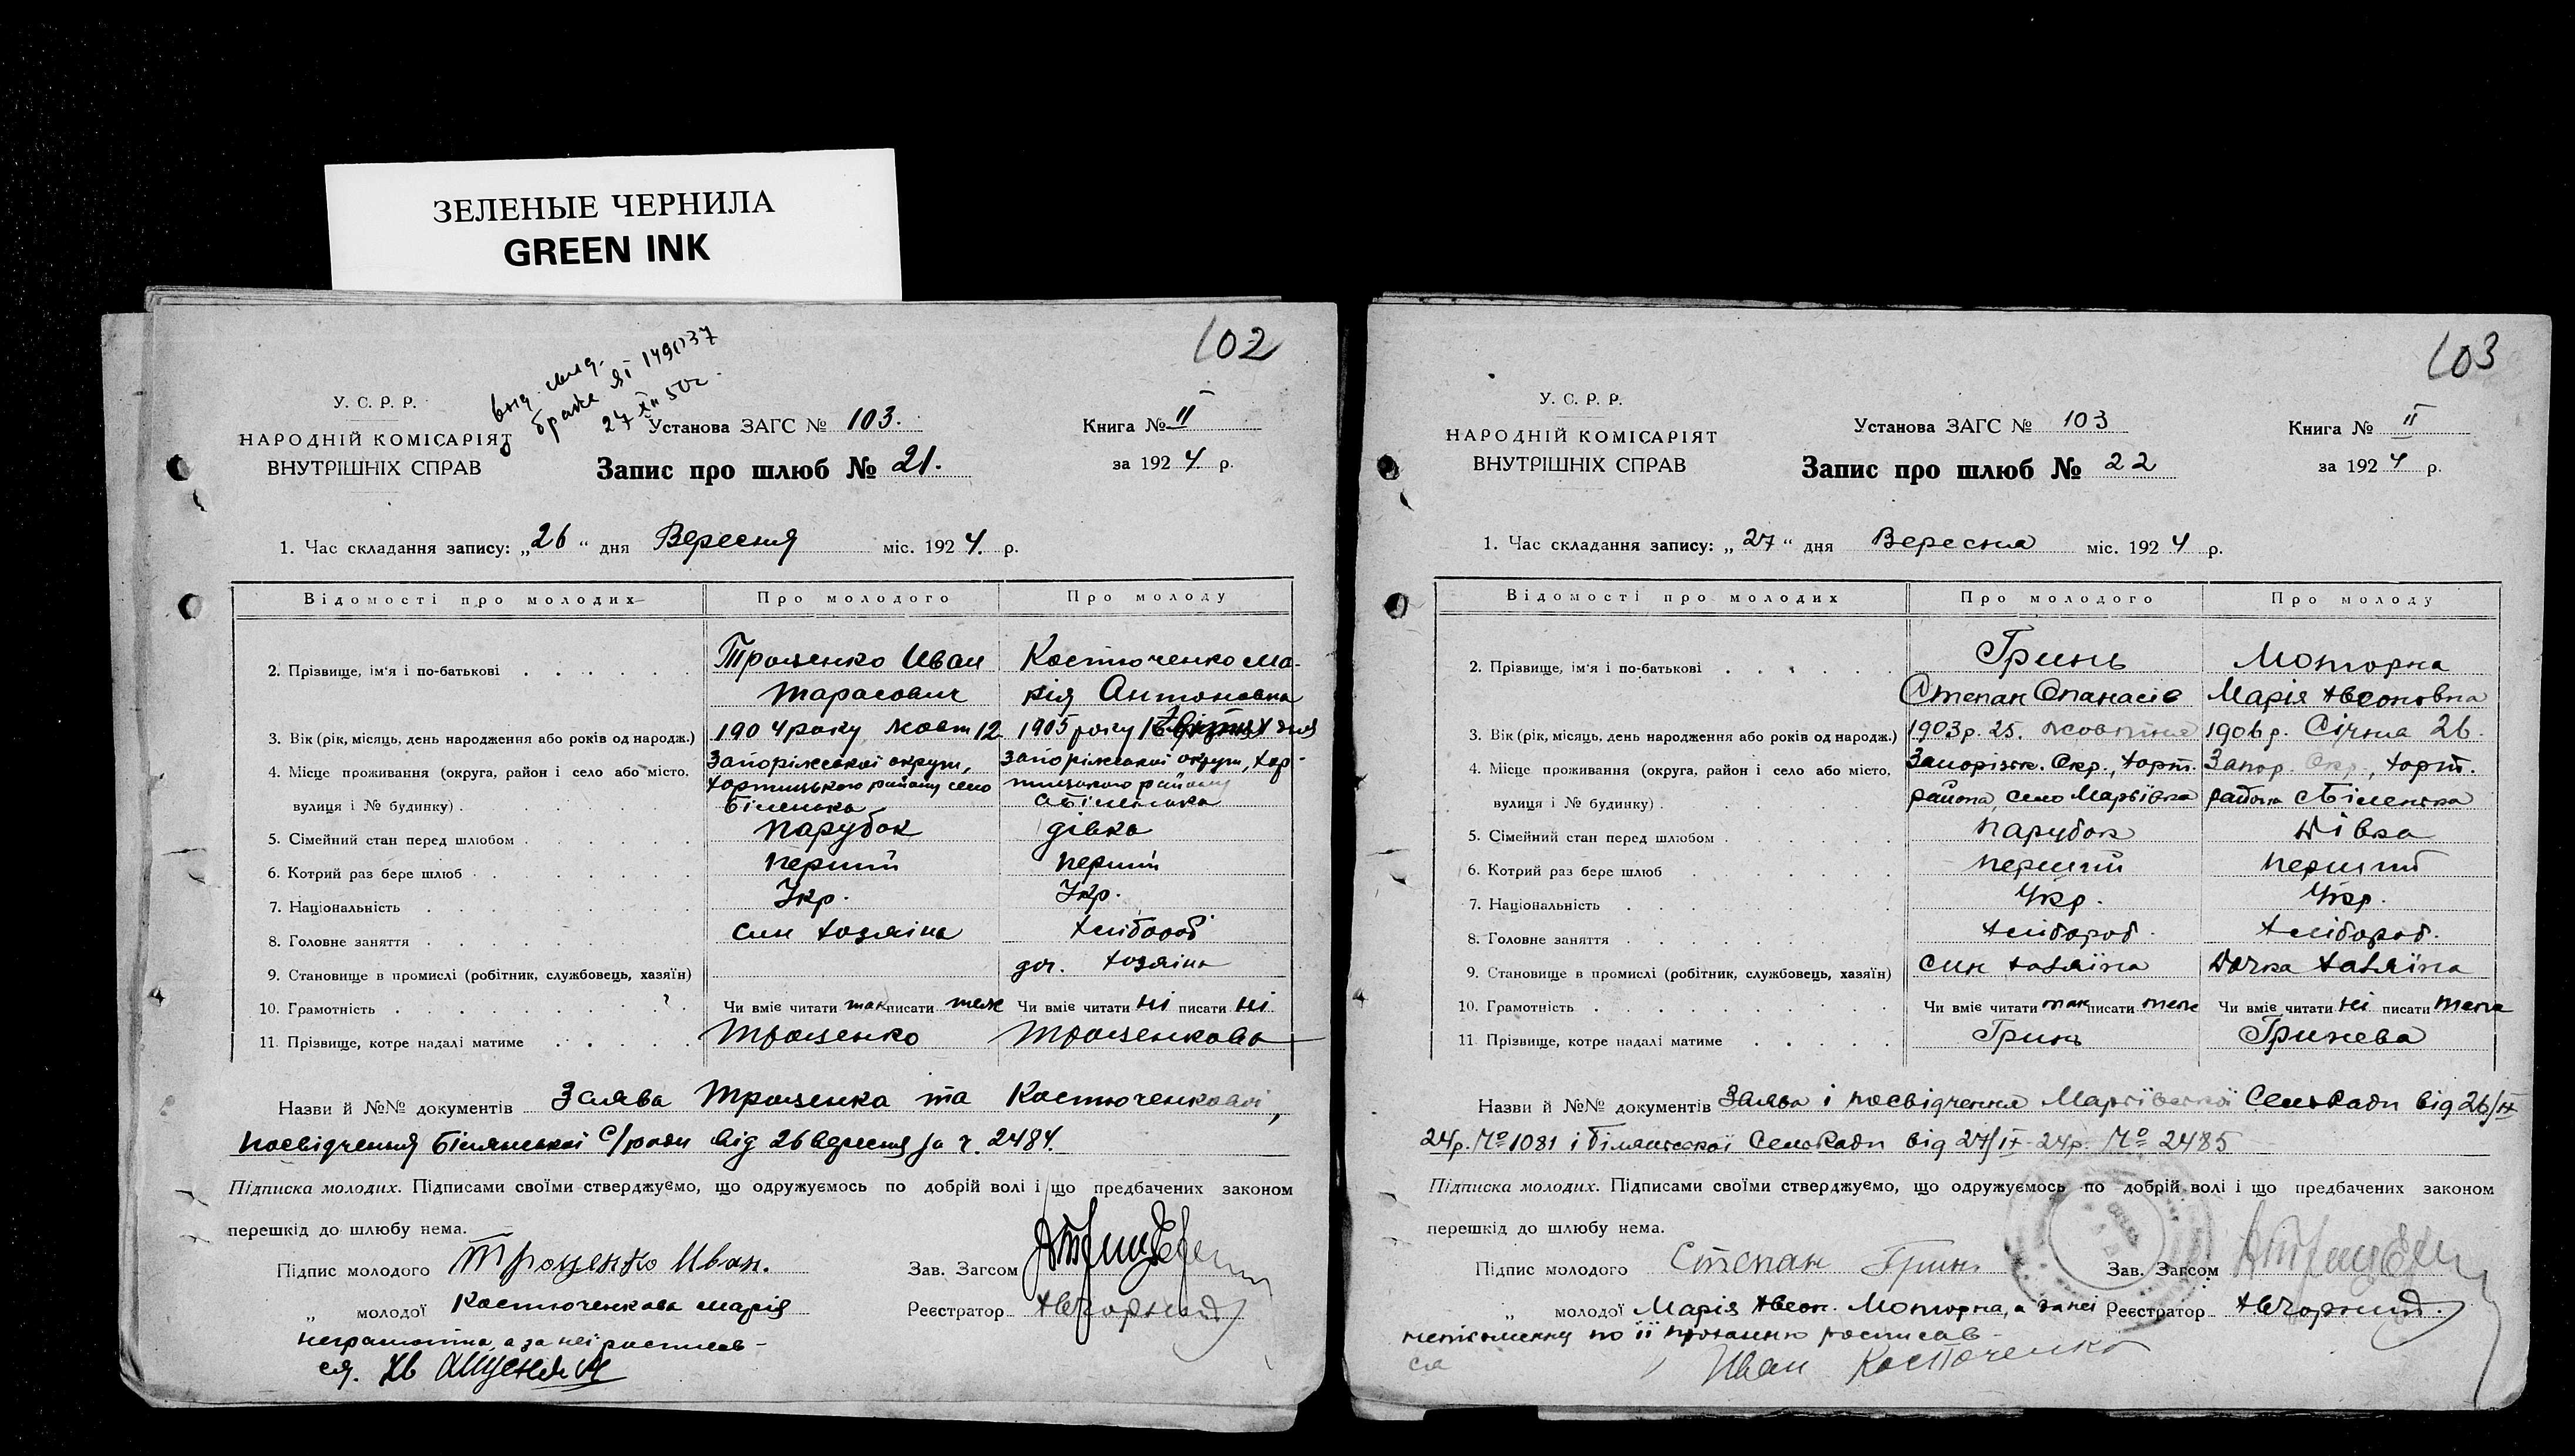 ЗЕЛЕНЫЕ ЧЕРНИЛА
GREEN INK
102
У. С. Р. Р.
НАРОДНІЙ КОМІСАРІЯТ
ВНУТРІШНІХ СПРАВ
брака 149037
27 XII 50г.
Установа ЗАГС № 103.
Книга № II
Запис про шлюб № 21.
за 1924 р.
1. Час складання запису: „26“ дня Вересня міс. 1924. р.
Відомості про молодих
Про молодого
Про молоду
2. Прізвище, ім'я і по-батькові
Трощенко Иван
Тарасович
Костюченко Ма-
рія Антоновна
3. Вік (рік, місяць, день народження або років од народж.)
1904 року жовт 12
1905 року
4. Місце проживання (округа, район і село або місто,
вулиця і № будинку)
Запоріжської округи,
Хортицького району село
Біленька
Запоріжської округи, Хор-
тицького району
с Біленька
5. Сімейний стан перед шлюбом
парубок
дівка
6. Котрий раз бере шлюб
перший
перший
7. Національність
Укр.
Укр.
8. Головне заняття
син хозяіна
хлібороб
9. Становище в промислі (робітник, службовець, хазяїн)
доч. хозяіна
10. Грамотність
Чи вміє читати так писати теж
Чи вміє читати ні писати ні
11. Прізвище, котре надалі матиме
Трощенко
Трощенкова
Назви й №№ документів Заява Трощенка та Костюченкової,
посвідчення Білянської с/ради від 26 вересня за ч. 2484.
Підписка молодих. Підписами своїми стверджуємо, що одружуємось по добрій волі і що предбачених законом
перешкід до шлюбу нема.
Підпис молодого Трощенко Иван.
Зав. Загсом
„ молодої Костюченкова Марія
Реєстратор
неграмотна, а за неї росписав-
ся.
103
У. С. Р. Р.
НАРОДНІЙ КОМІСАРІЯТ
ВНУТРІШНІХ СПРАВ
Установа ЗАГС № 103
Книга № II
Запис про шлюб № 22
за 1924 р.
1. Час складання запису: „27“ дня Вересня міс. 1924 р.
Відомості про молодих
Про молодого
Про молоду
2. Прізвище, ім'я і по-батькові
Гринь
Степан Опанасів
Моторна
Марія Авеоновна
3. Вік (рік, місяць, день народження або років од народж.)
1903 р. 25. жовтня
1906 р. Січня 26.
4. Місце проживання (округа, район і село або місто,
вулиця і № будинку)
Запоріжк. Окр., Хорт.
района, село Мар'ївка
Запор. Окр., Хорт.
района с Біленька
5. Сімейний стан перед шлюбом
парубок
Дівка
6. Котрий раз бере шлюб
перший
перший
7. Національність
Укр.
Укр.
8. Головне заняття
хлібороб.
хлібороб.
9. Становище в промислі (робітник, службовець, хазяїн)
син хазяїна
Дочка хазяїна
10. Грамотність
Чи вміє читати так писати теж
Чи вміє читати ні писати теж
11 Прізвище, котре надалі матиме
Гринь
Гринева
Назви й №№ документів Заява і посвідчення Мар'ївської СельРади від 26/IX
24р. № 1081 і Білянської СельРади від 27/IX-24р. № 2485
Підписка молодих. Підписами своїми стверджуємо, що одружуємось по добрій волі і що предбачених законом
перешкід до шлюбу нема.
Підпис молодого Степан Гринь
Зав. Загсом
„ молодої Марія Авеон. Моторна, а за неї
Реєстратор
неписьменну по її проханню росписав-
ся Иван Костюченко